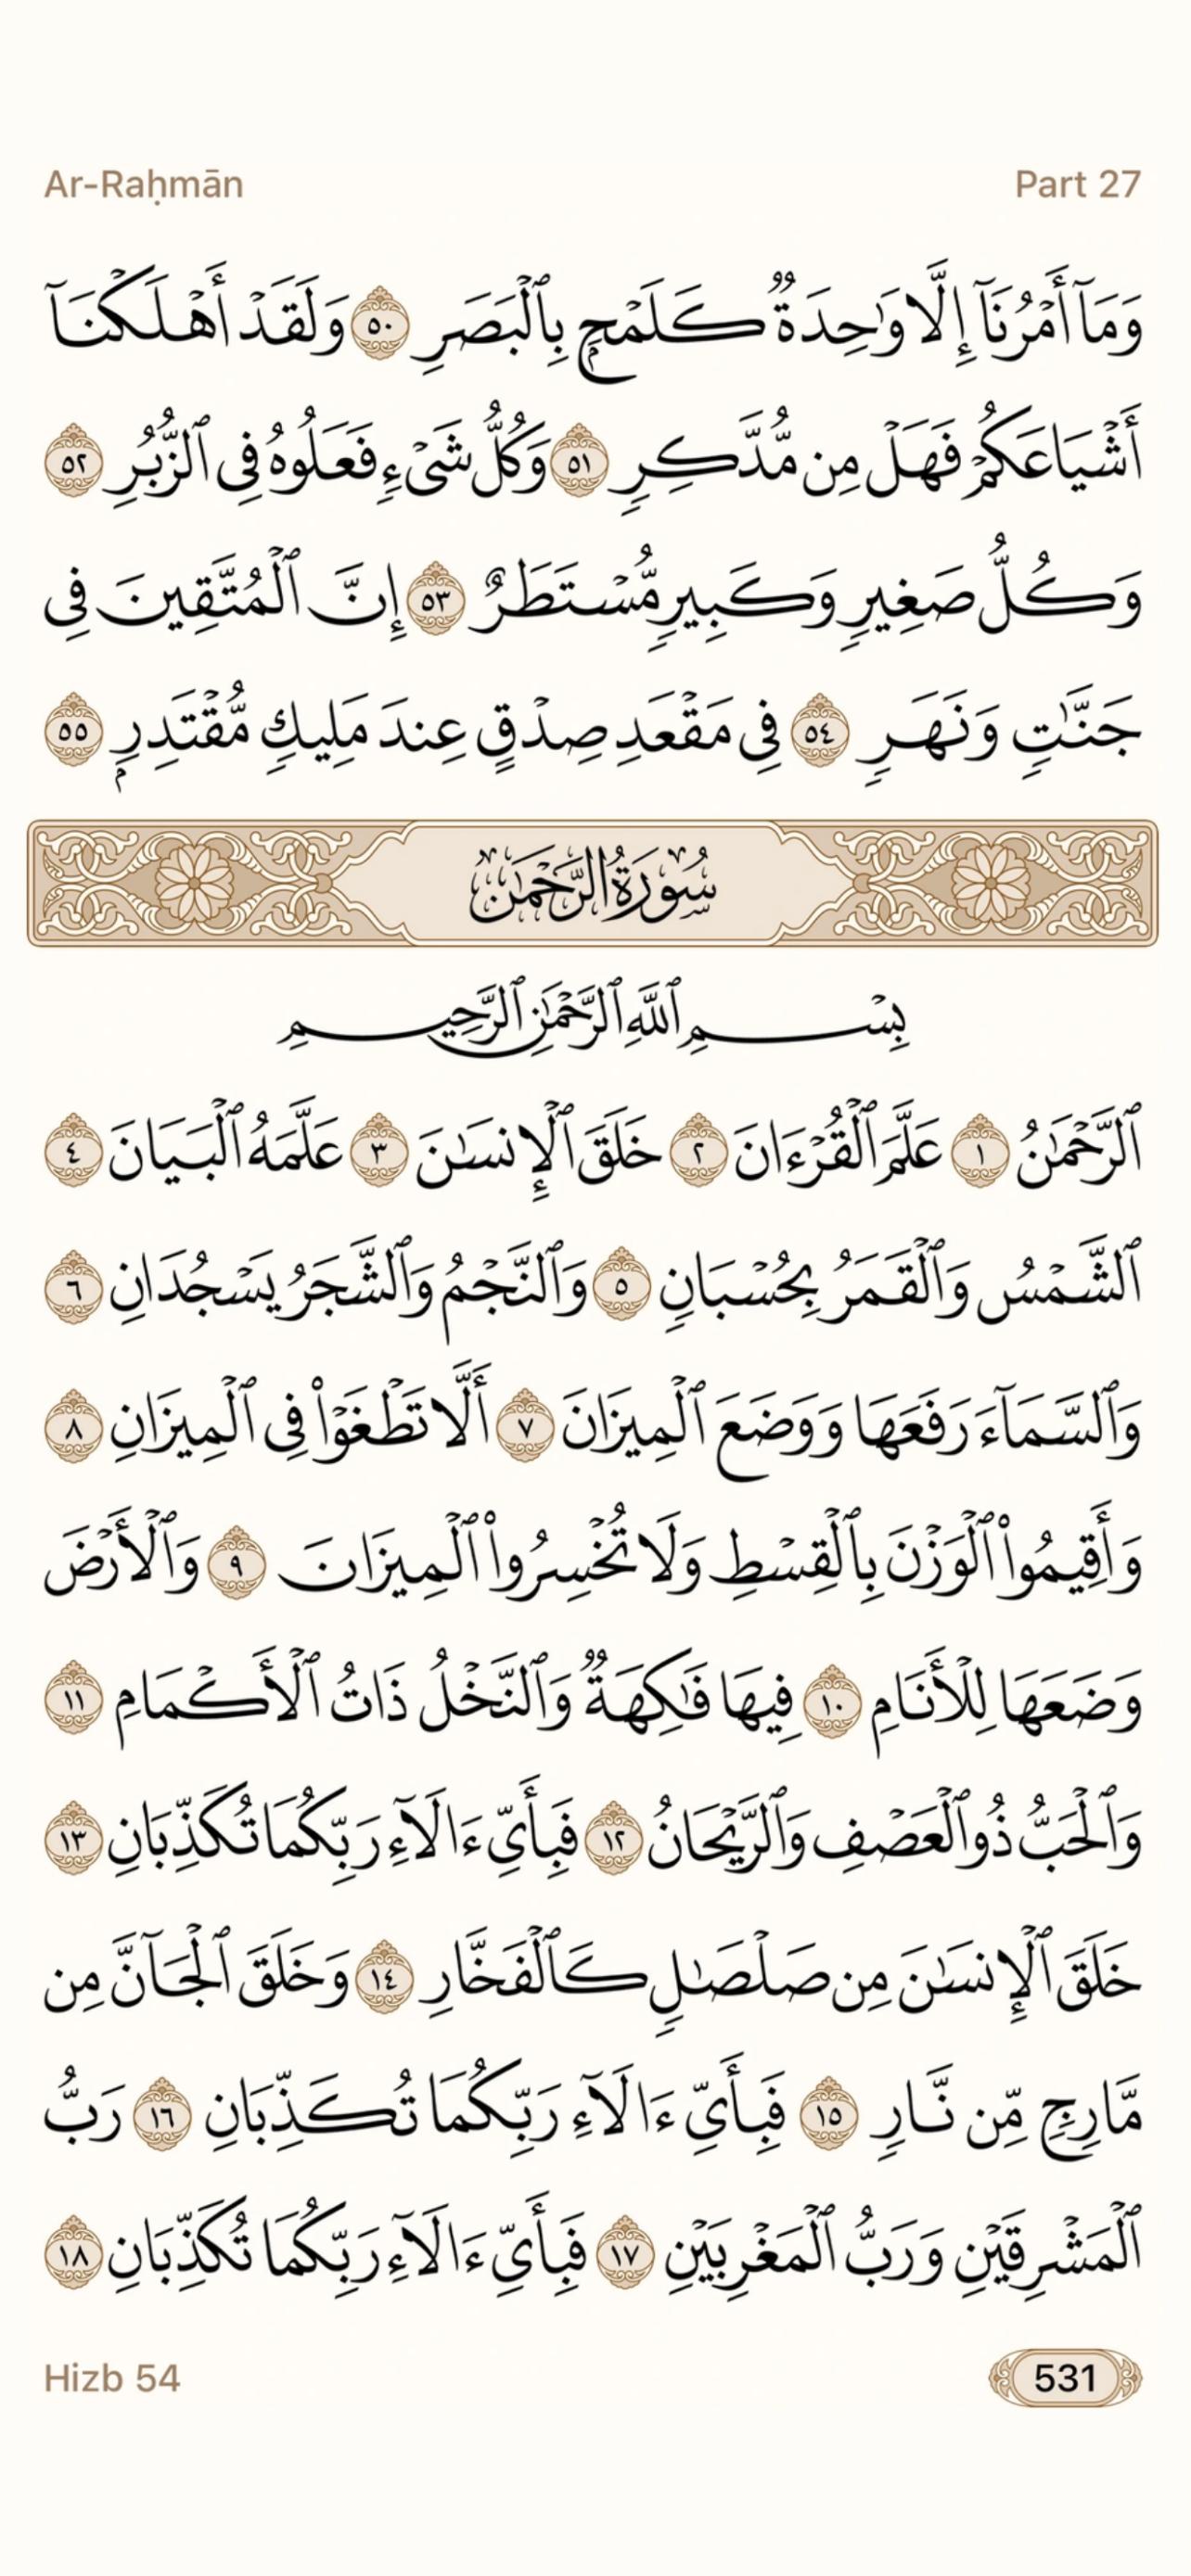 Ar-Raḥmān
Part 27
وَمَآ أَمْرُنَآ إِلَّا وَٰحِدَةٌ كَلَمْحٍۭ بِٱلْبَصَرِ ٥٠ وَلَقَدْ أَهْلَكْنَآ
أَشْيَاعَكُمْ فَهَلْ مِن مُّدَّكِرٍ ٥١ وَكُلُّ شَىْءٍ فَعَلُوهُ فِى ٱلزُّبُرِ ٥٢
وَكُلُّ صَغِيرٍ وَكَبِيرٍ مُّسْتَطَرٌ ٥٣ إِنَّ ٱلْمُتَّقِينَ فِى
جَنَّٰتٍ وَنَهَرٍ ٥٤ فِى مَقْعَدِ صِدْقٍ عِندَ مَلِيكٍ مُّقْتَدِرٍۭ ٥٥
سُورَةُ الرَّحْمَٰن
بِسْمِ ٱللَّهِ ٱلرَّحْمَٰنِ ٱلرَّحِيمِ
ٱلرَّحْمَٰنُ ١ عَلَّمَ ٱلْقُرْءَانَ ٢ خَلَقَ ٱلْإِنسَٰنَ ٣ عَلَّمَهُ ٱلْبَيَانَ ٤
ٱلشَّمْسُ وَٱلْقَمَرُ بِحُسْبَانٍ ٥ وَٱلنَّجْمُ وَٱلشَّجَرُ يَسْجُدَانِ ٦
وَٱلسَّمَآءَ رَفَعَهَا وَوَضَعَ ٱلْمِيزَانَ ٧ أَلَّا تَطْغَوْا۟ فِى ٱلْمِيزَانِ ٨
وَأَقِيمُوا۟ ٱلْوَزْنَ بِٱلْقِسْطِ وَلَا تُخْسِرُوا۟ ٱلْمِيزَانَ ٩ وَٱلْأَرْضَ
وَضَعَهَا لِلْأَنَامِ ١٠ فِيهَا فَٰكِهَةٌ وَٱلنَّخْلُ ذَاتُ ٱلْأَكْمَامِ ١١
وَٱلْحَبُّ ذُو ٱلْعَصْفِ وَٱلرَّيْحَانُ ١٢ فَبِأَىِّ ءَالَآءِ رَبِّكُمَا تُكَذِّبَانِ ١٣
خَلَقَ ٱلْإِنسَٰنَ مِن صَلْصَٰلٍ كَٱلْفَخَّارِ ١٤ وَخَلَقَ ٱلْجَآنَّ مِن
مَّارِجٍ مِّن نَّارٍ ١٥ فَبِأَىِّ ءَالَآءِ رَبِّكُمَا تُكَذِّبَانِ ١٦ رَبُّ
ٱلْمَشْرِقَيْنِ وَرَبُّ ٱلْمَغْرِبَيْنِ ١٧ فَبِأَىِّ ءَالَآءِ رَبِّكُمَا تُكَذِّبَانِ ١٨
Hizb 54
531